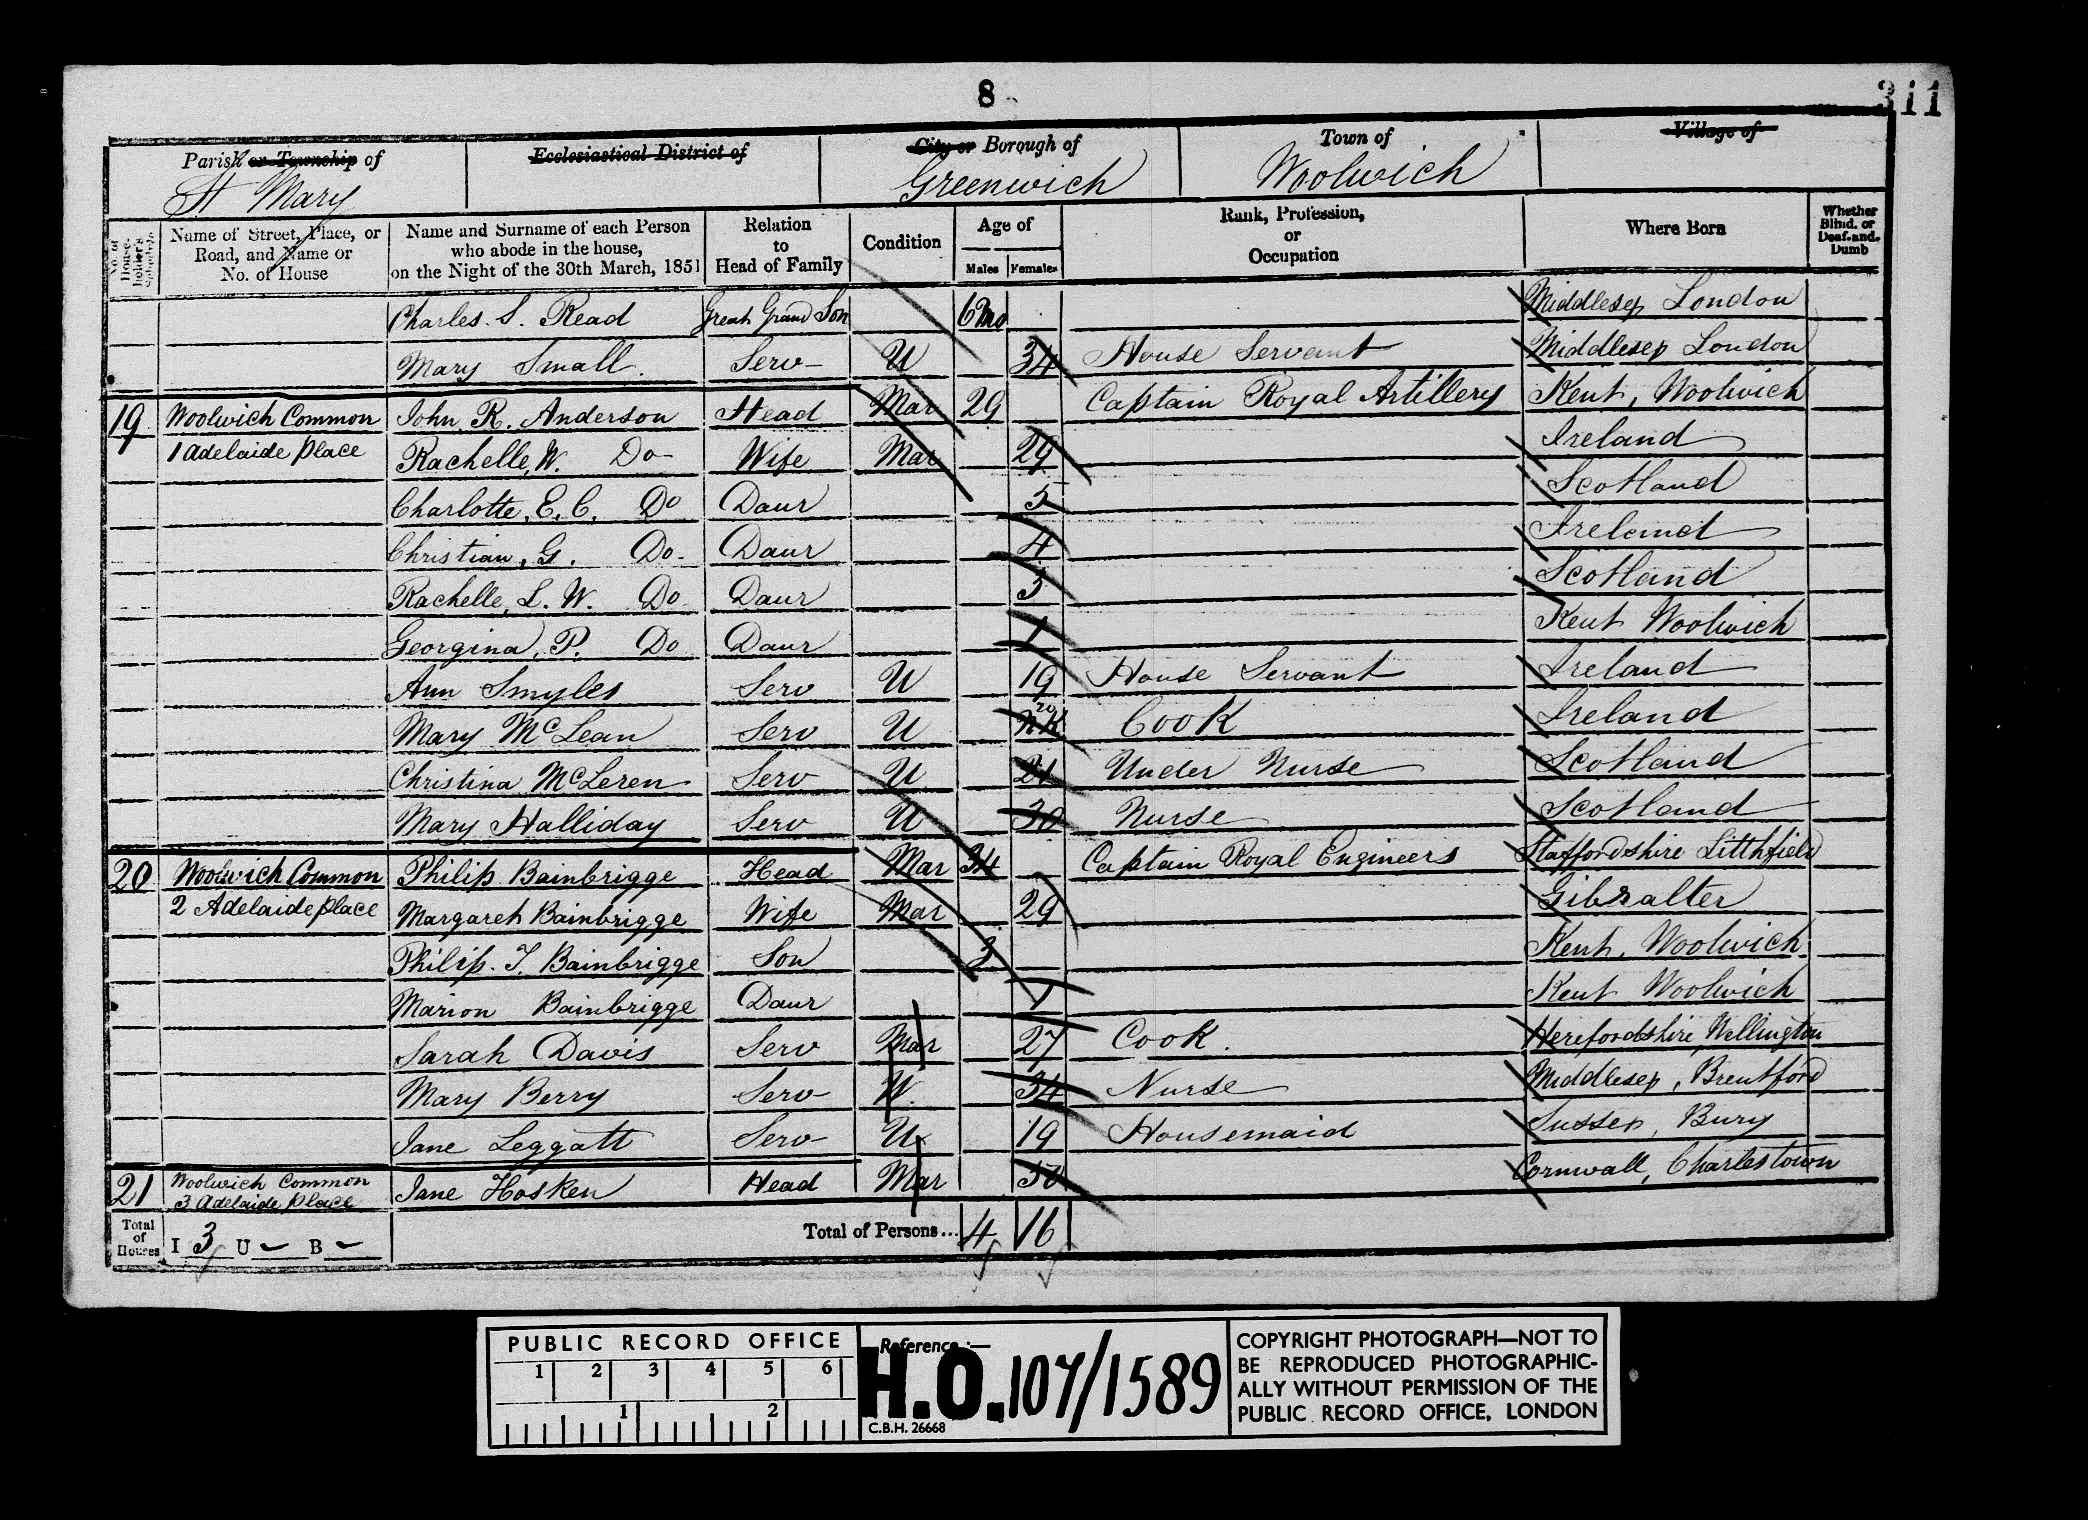 8
311
Parish or Township of
St Mary
Ecclesiastical District of
City or Borough of
Greenwich
Town of
Woolwich
Village of
No. of House-holder's Schedule
Name of Street, Place, or Road, and Name or No. of House
Name and Surname of each Person who abode in the house, on the Night of the 30th March, 1851
Relation to Head of Family
Condition
Age of
Males Females
Rank, Profession, or Occupation
Where Born
Whether Blind, or Deaf-and-Dumb
Charles. S. Read Great Grand Son 6 mo Middlesex London
Mary Small. Serv U 34 House Servant Middlesex London
19 Woolwich Common John R. Anderson Head Mar 29 Captain Royal Artillery Kent, Woolwich
1 Adelaide Place Rachelle, W. Do Wife Mar 29 Ireland
Charlotte, E. C. Do Daur 5 Scotland
Christian, G. Do Daur 4 Ireland
Rachelle, L. W. Do Daur 3 Scotland
Georgina, P. Do Daur 1 Kent Woolwich
Ann Smyles Serv U 19 House Servant Ireland
Mary McLean Serv U NK 20 Cook Ireland
Christina McLeren Serv U 21 Under Nurse Scotland
Mary Halliday Serv U 30 Nurse Scotland
20 Woolwich Common Philip Bainbrigge Head Mar 34 Captain Royal Engineers Staffordshire Litthfield
2 Adelaide place Margaret Bainbrigge Wife Mar 29 Gibralter
Philip. T. Bainbrigge Son 3 Kent, Woolwich
Marion Bainbrigge Daur 1 Kent Woolwich
Sarah Davis Serv Mar 27 Cook. Herefordshire Wellington
Mary Berry Serv W. 34 Nurse Middlesex, Brentford
Jane Leggatt Serv U 19 Housemaid Sussex, Bury
21 Woolwich Common
3 Adelaide Place Jane Hosken Head Mar 50 Cornwall, Charlestown
Total of Houses I 3 U - B - Total of Persons... 4 16
PUBLIC RECORD OFFICE
1 2 3 4 5 6
1 2
Reference:—
H.O. 107/1589
C.B.H. 26668
COPYRIGHT PHOTOGRAPH—NOT TO
BE REPRODUCED PHOTOGRAPHIC-
ALLY WITHOUT PERMISSION OF THE
PUBLIC RECORD OFFICE, LONDON